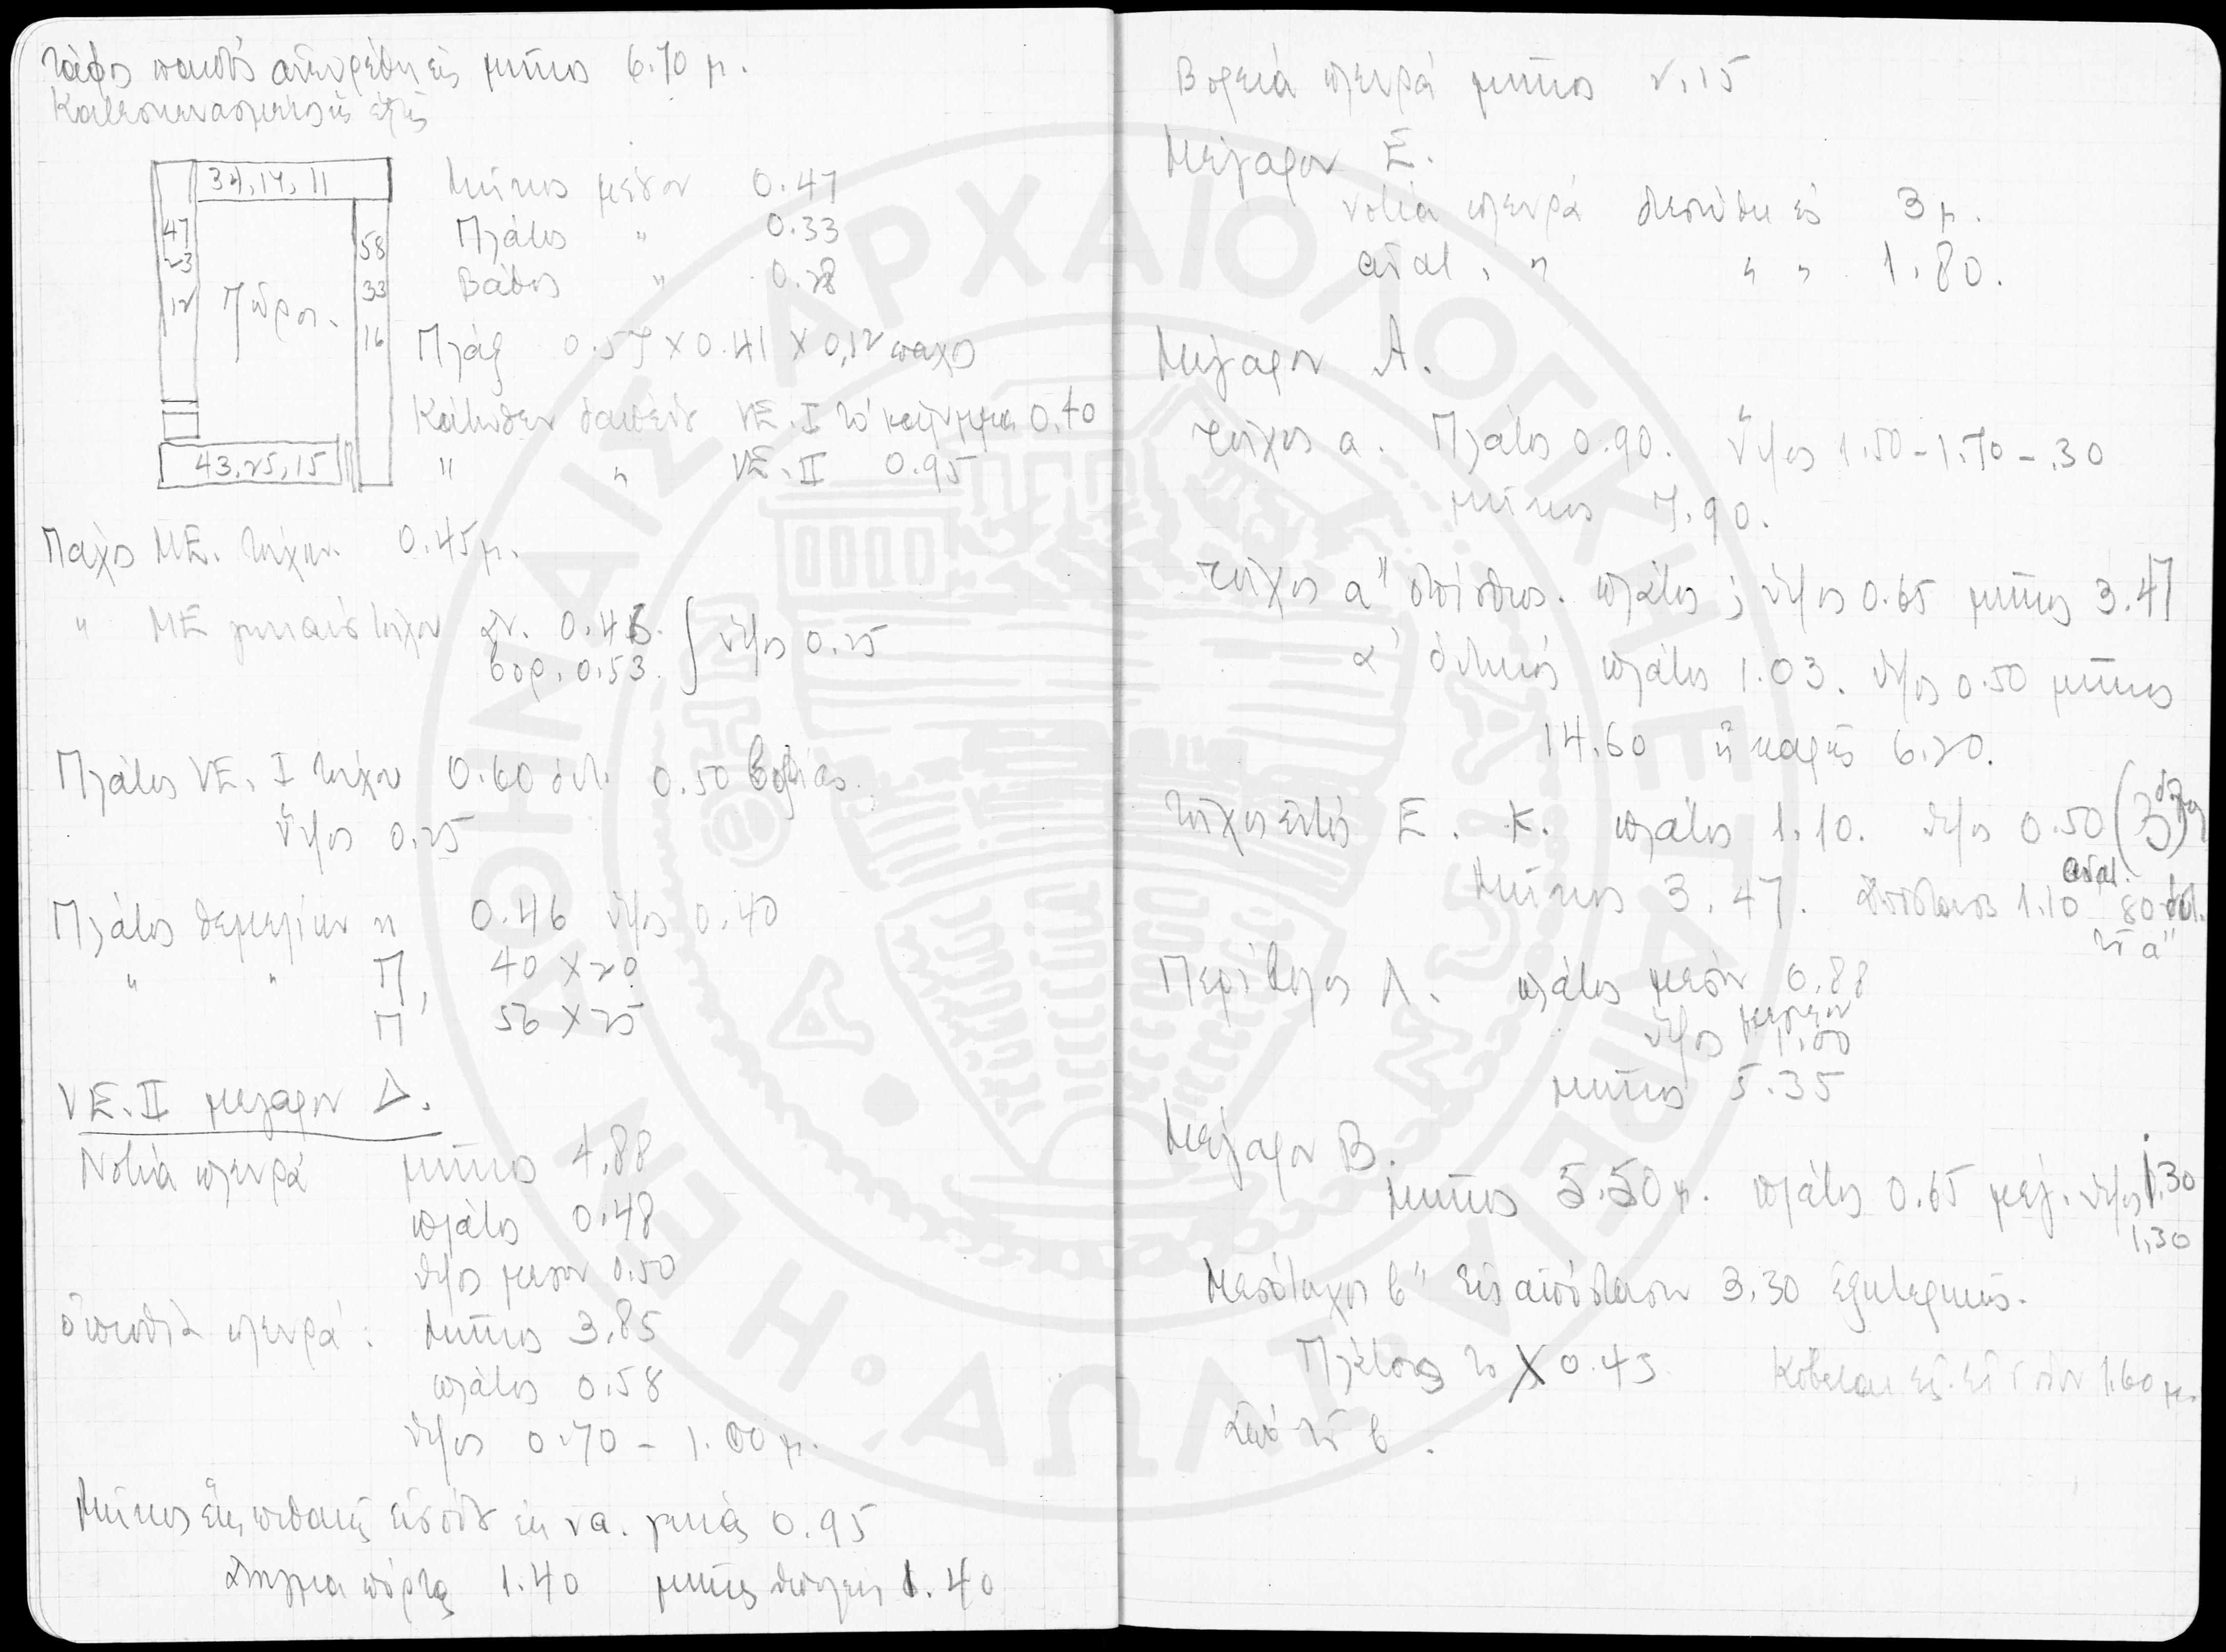 Τάφος παιδὸς ἀνευρέθη εἰς μῆκος 6.70 μ.
Κατεσκευασμένος ὡς ἑξῆς
34,14,11
47
23
12
Πῶροι.
58
33
16
43,25,15
Μῆκος μέσον 0.47
Πλάτος " 0.33
Βάθος " 0.28
Πλάξ 0.57 × 0.41 × 0,12 παχος
Κάτωθεν δαπέδου ΥΕ. Ι τὸ κάλυμμα 0.40
" " ΥΕ. ΙΙ 0.95
Παχος ΜΕ. τοίχου 0.45 μ.
" ΜΕ γυναικὸς τοίχου ἀν. 0.46.
βορ. 0.53.
ὕψος 0.25
Πλάτος ΥΕ. Ι τοίχου 0.60 δυτ. 0.50 βορείως.
ὕψος 0.25
Πλάτος θεμελίων κ 0.46 ὕψος 0.40
" " Π, 40 × 20
Π' 56 × 25
ΥΕ. ΙΙ μεγαρον Δ.
Νοτία πλευρά μῆκος 4.88
πλάτος 0.48
ὕψος μεσον 0.50
ὀπισθία πλευρά: μῆκος 3.85
πλάτος 0.58
ὕψος 0.70 – 1.00 μ.
Μῆκος πιθανῆς εἰσόδου εἰς να. γωνίας 0.95
Ἄνοιγμα πόρτας 1.40 μῆκος 1.40
Βορεία πλευρά μῆκος 2.15
Μέγαρον Ε.
νοτία πλευρά διεσώθη εἰς 3 μ.
ἀνατ. " " " 1.80.
Μέγαρον Α.
τοῖχος α. Πλάτος 0.90. ὕψος 1.50 – 1.70 – .30
μῆκος 7.90.
τοῖχος α" ὀπίσθιος. πλάτος ; ὕψος 0.65 μῆκος 3.47
α' δυτικός πλάτος 1.03. ὕψος 0.50 μῆκος
14.60 6.20.
τοῖχος ἐντός Ε. Κ. πλάτος 1.10. ὕψος 0.50 (3
Μῆκος 3.47. ἀπόστασις 1.10 ἀνατ. 80 δυτ.
τοῦ α"
Περίβολος Λ. πλάτος μεσον 0.88
ὕψος 1.00
μῆκος 5.35
Μέγαρον Β.
μῆκος 5.50 μ. πλάτος 0.65 μεγ. ὕψος 1.30
1,30
Μεσότοιχος β" Εἰς ἀπόστασιν 3.30 ἐξωτερικῶς.
Πλάτος το 0.43 1.60 μ.
ἀπὸ τοῦ β.